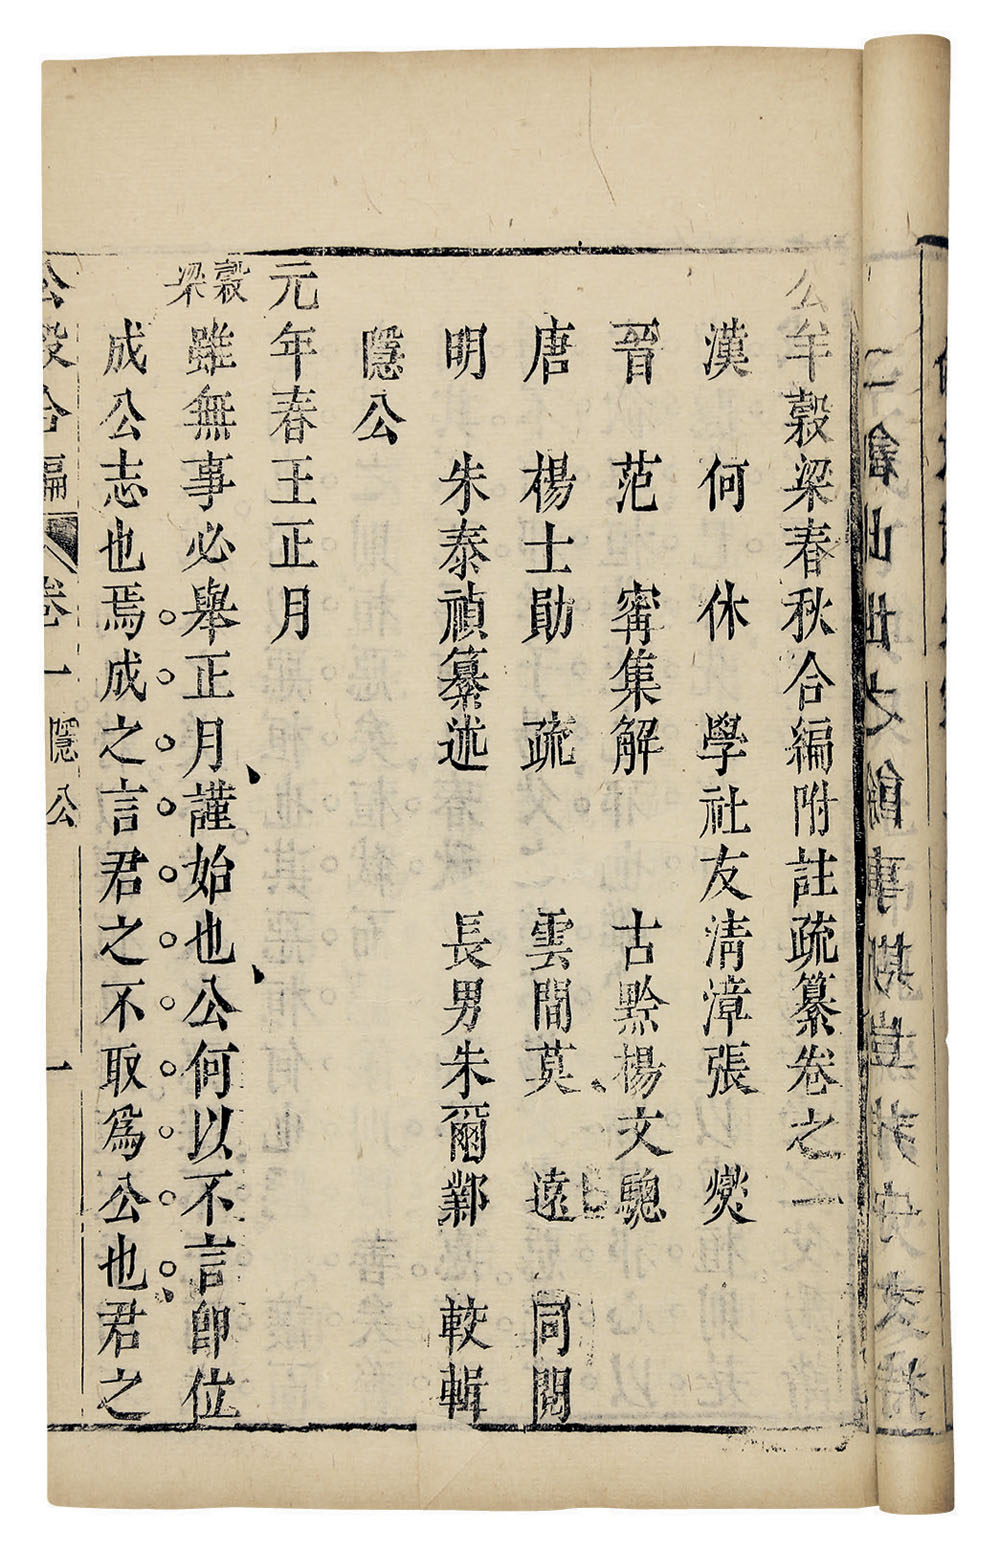 公羊穀梁春秋合編附註疏纂卷之一
漢　何　休　學社友清漳張　燮
晉　范　甯集解　古黟楊文驄
唐　楊士勛　疏　雲間莫　遠　同閱
明　朱泰禎纂述　長男朱爾鄴　較輯
隱公
元年春王正月
穀梁 雖無事必舉正月謹始也公何以不言即位
成公志也焉成之言君之不取為公也君之
公穀合編 卷一 隱公 一